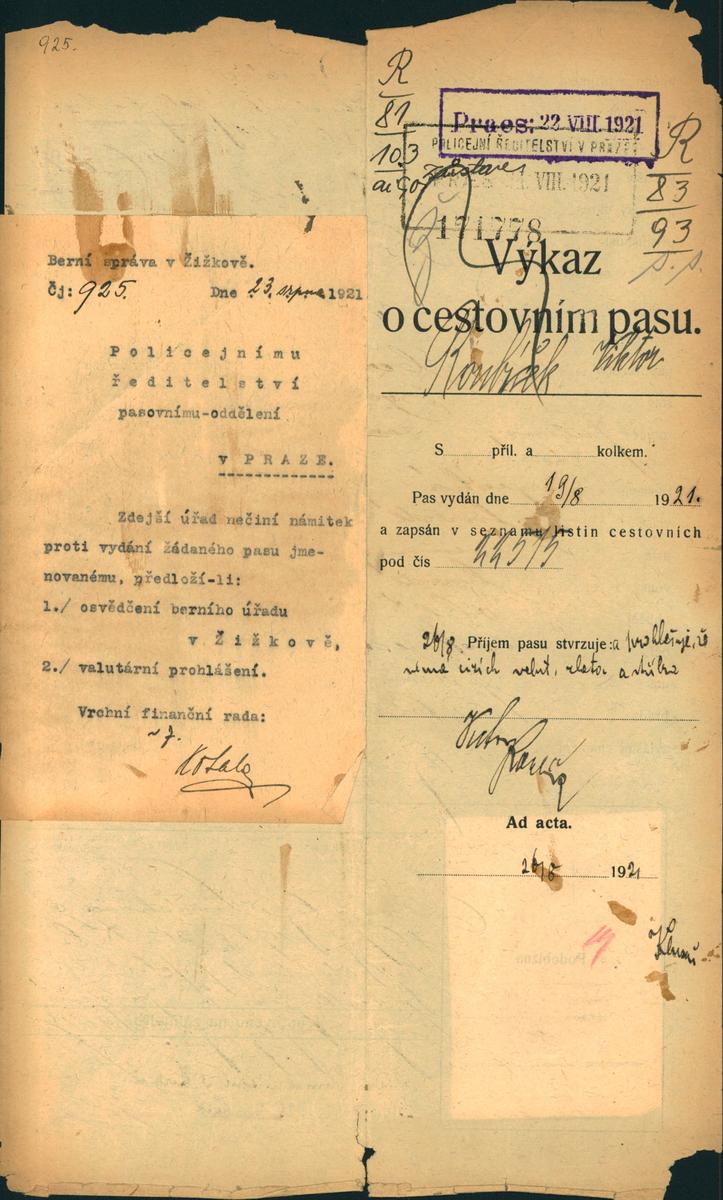 925.
Berní správa v Žižkově.
Čj: 925. Dne 23. srpna 1921
Policejnímu
ředitelství
pasovnímu-oddělení
v PRAZE.
Zdejší úřad nečiní námitek
proti vydání žádaného pasu jme-
novanému, předloží-li:
1./ osvědčení berního úřadu
v Žižkově,
2./ valutární prohlášení.
Vrchní finanční rada:
R
81
103
Praes: 22 VIII. 1921
POLICEJNÍ ŘEDITELSTVÍ V PRAZE
VIII. 1921
171778
R
83
93
Výkaz
o cestovním pasu.
Roubíček Viktor
S příl. a kolkem.
Pas vydán dne 19/8 1921.
a zapsán v seznamu listin cestovních
pod čís
26/8 Příjem pasu stvrzuje: a prohlašuje, že
nemá cizích valut, zlata a stříbra
Viktor
Ad acta.
26/8 1921
Podobizna